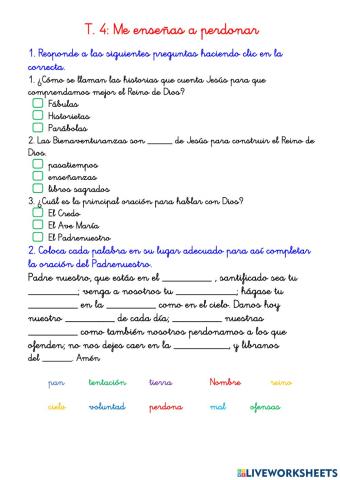 T. 4: Me enseñas a perdonar
1. Responde a las siguientes preguntas haciendo clic en la
correcta.
1. ¿Cómo se llaman las historias que cuenta Jesús para que
comprendamos mejor el Reino de Dios?
Fábulas
Historietas
Parábolas
2. Las Bienaventuranzas son _____ de Jesús para construir el Reino de
Dios.
pasatiempos
enseñanzas
libros sagrados
3. ¿Cuál es la principal oración para hablar con Dios?
El Credo
El Ave María
El Padrenuestro
2. Coloca cada palabra en su lugar adecuado para así completar
la oración del Padrenuestro.
Padre nuestro, que estás en el __________ , santificado sea tu
__________; venga a nosotros tu ____________; hágase tu
__________ en la __________ como en el cielo. Danos hoy
nuestro __________ de cada día; __________ nuestras
__________ como también nosotros perdonamos a los que
ofenden; no nos dejes caer en la ___________, y líbranos
del ______. Amén
pan tentación tierra Nombre reino
cielo voluntad perdona mal ofensas
LIVEWORKSHEETS